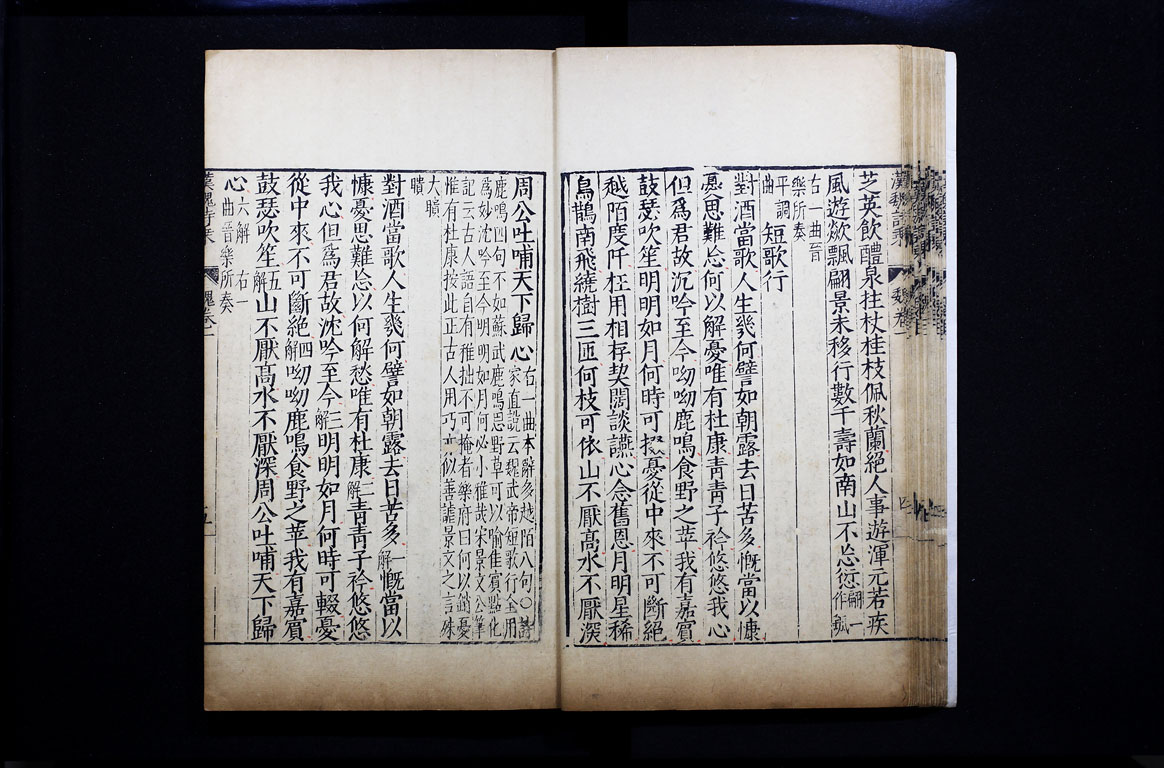 芝英飲醴泉拄杖桂枝佩秋蘭絕人事遊渾元若疾
風遊歘飄翩景未移行數千壽如南山不忘愆翩一作飄
右一曲晉樂所奏
短歌行
平調曲
對酒當歌人生幾何譬如朝露去日苦多慨當以慷
憂思難忘何以解憂唯有杜康青青子衿悠悠我心
但爲君故沉吟至今呦呦鹿鳴食野之苹我有嘉賓
鼓瑟吹笙明明如月何時可掇憂從中來不可斷絕
越陌度阡枉用相存契闊談讌心念舊恩月明星稀
烏鵲南飛繞樹三匝何枝可依山不厭高水不厭深
周公吐哺天下歸心
右一曲本辭多越陌八句○詩
家直説云魏武帝短歌行全用
鹿鳴四句不如蘇武鹿鳴思野草可以喻佳賓點化
爲妙沈吟至今明明如月何必小雅哉宋景文公筆
記云古人語自有稚拙不可掩者樂府曰何以銷憂
惟有杜康按此正古人用巧 似善謔景文之言殊
大聵聵
對酒當歌人生幾何譬如朝露去日苦多一解慨當以
慷憂思難忘以何解愁唯有杜康二解青青子衿悠悠
我心但爲君故沈吟至今三解明明如月何時可輟憂
從中來不可斷絕四解呦呦鹿鳴食野之苹我有嘉賓
鼓瑟吹笙五解山不厭高水不厭深周公吐哺天下歸
心六解 右一曲晉樂所奏
漢魏詩乘
魏卷一
五